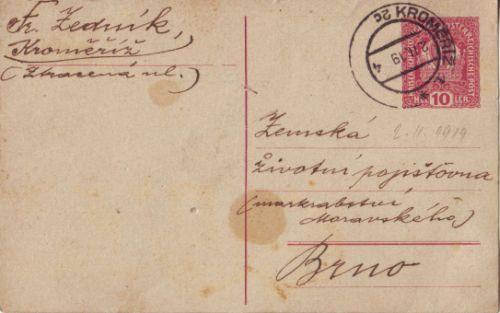 Fr. Zedník,
Kroměříž
(Ztracená ul.)
KROMĚŘÍŽ 2c
10
HELLER
Zemská
2. II. 1919
životní pojišťovna
(markrabství
Moravského)
Brno